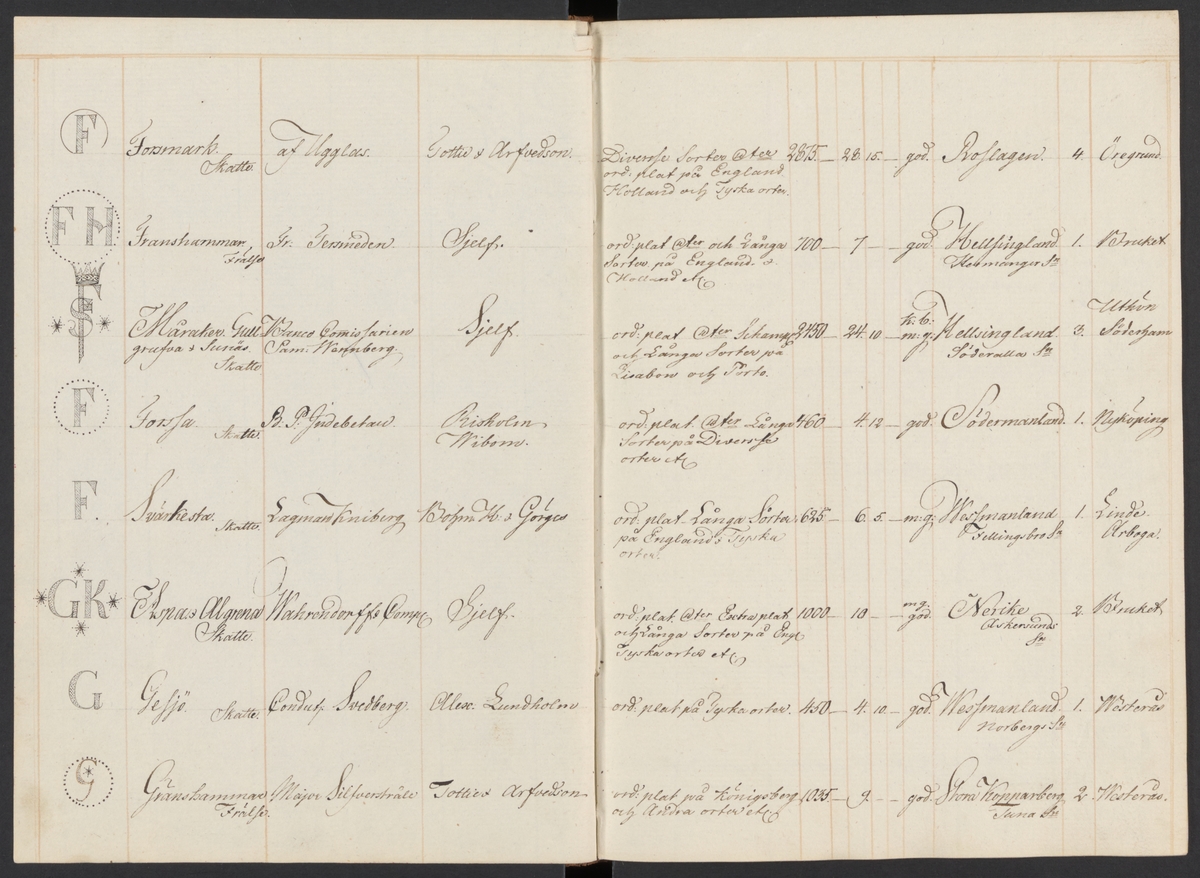 F Forsmark. af Ugglas. Tottie & Arfvedson. Diverse Sorter @ter 2875 — 28 15. — god. Roslagen. 4. Öregrund.
Skatte. ord. plat på England
Holland och Tyska orter.
F H Franshammar, Gr: Termeden Sjelf. ord: plat @ter och Långa 700 — 7 — god. Hellsingland 1. Bruket
Frälse Sorter på England &
Holland etc
Uthön
k. b:
F S Maråker, Gull Banco Comissarien Sjelf. ord: plat @ter 2450 — 24. 10 — m: g: Hellsingland 3. Söderham
grufva & Sunäs Sam: Wennberg och Långa Sorter på Söderalla Sn
Skatte Lisabon och Porto.
F Forssa B. P. Risholm ord: plat. @ter Långa 460 — 4. 12 — god. Södermanland. 1. Nyköping
Skatte. Wibom. Sorter på Diversse
orter etc
F. Svärkesta Lagman Kniberg Bohm H. & Görges ord: plat. Långa Sorter 625 — 6. 5. — m: g: Wessmanland 1. Linde
Skatte. på England & Tyska Fellingsbro Sn Arboga.
orter.
m g.
GK Aspa & Algrena Wahrendorffs Comp Sjelf. ord: plat. @ter Extra plat 1000 — 10 — god. Nerike 2 Bruket
Skatte. och Långa Sorter på Engl Askersunds
Tyska orter etc Sn
G Gessjö. Conduct. Svedberg. Alex. Lundholm ord: plat på Tyska orter. 450 — 4. 10 — god. Wessmanland. 1. Westerås
Skatte. Norbergs Sn
G Gränshammar Major Silfverstråle Tottie & Arfvedson ord: plat på Königsberg 1035 — 9. — god. Stora Kopparberg 2 Westerås.
Frälse. och Andra orter etc Tuna Sn